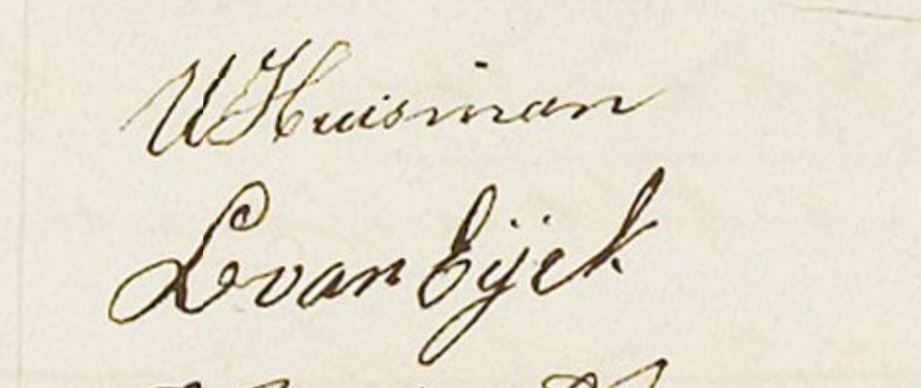 U Huisman
L van Eijck